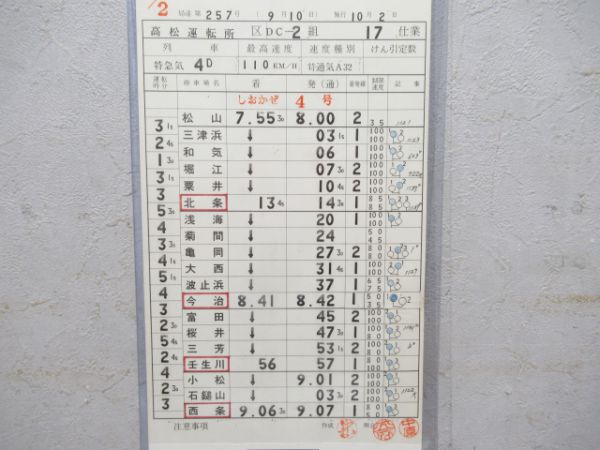 1/2 局達第257号 (9月10日) 施行10月2日
高松運転所 区DC-2組 17仕業
列車 最高速度 速度種別 けん引定数
特急気4D 110KM/H 特通気A32
運転時分 停車場名 着 発(通) 着発線 制限速度 記事
しおかぜ 4号
松山 7.55 30 8.00 2 35
3 1s
三津浜 ↓ 03 1s 1 100 100
2 4s
和気 ↓ 06 1 100 100
1 3s
堀江 ↓ 07 30 2 100 100
3 1s
粟井 ↓ 10 4s 2 100 100
3
北条 13 4s 14 3s 1 85 85
5 3s
浅海 ↓ 20 1 85 85
4
菊間 ↓ 24 50 45
3 3s
亀岡 ↓ 27 30 2 80 80
4 1s
大西 ↓ 31 4s 1 100 100
5 1s
波止浜 ↓ 37 1 75 65
4
今治 8.41 8.42 1 50 35
3
富田 ↓ 45 2 100 100
2 3s
桜井 ↓ 47 3s 1
5 4s
三芳 ↓ 53 1s 2
2 4s
壬生川 56 57 1
4
小松 ↓ 9.01 2
2 3s
石鎚山 ↓ 03 30 2
3
西条 9.06 3s 9.07 1
注意事項 作成